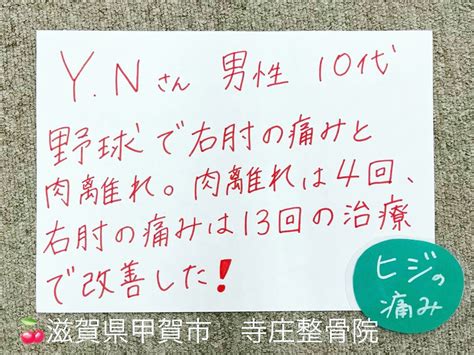 Y.Nさん 男性 10代
野球で右肘の痛みと
肉離れ。肉離れは4回、
右肘の痛みは13回の治療
で改善した!
ヒジの
痛み
🍒滋賀県甲賀市 寺庄整骨院